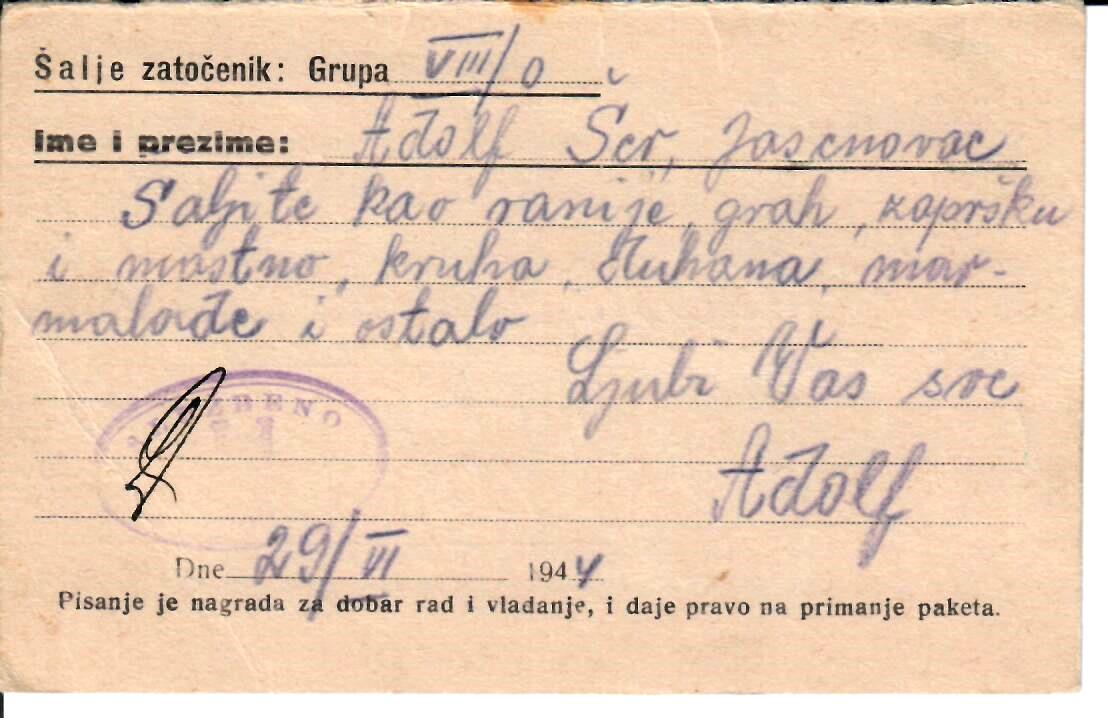 Šalje zatočenik: Grupa VIII/0
Ime i prezime: Adolf Šer, Jasenovac
Šaljite kao ranije, grah, zapršku
i mastno, kruha, duhana, mar-
malade i ostalo
Ljubi Vas sve
Adolf
Dne 29/VI 1944
Pisanje je nagrada za dobar rad i vladanje, i daje pravo na primanje paketa.